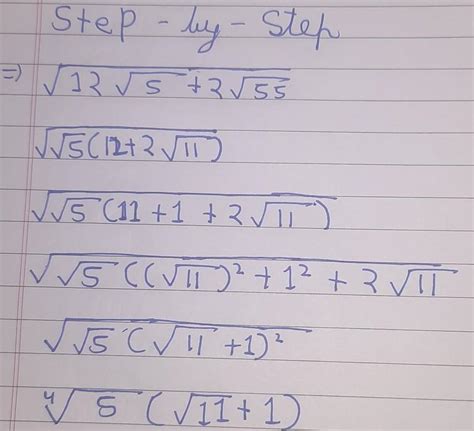 Step - by - Step
⇒ √(12√5 + 2√55)
√(√5(12+2√11))
√(√5(11+1+2√11))
√(√5((√11)² + 1² + 2√11
√(√5(√11+1)²
∜5(√11+1)